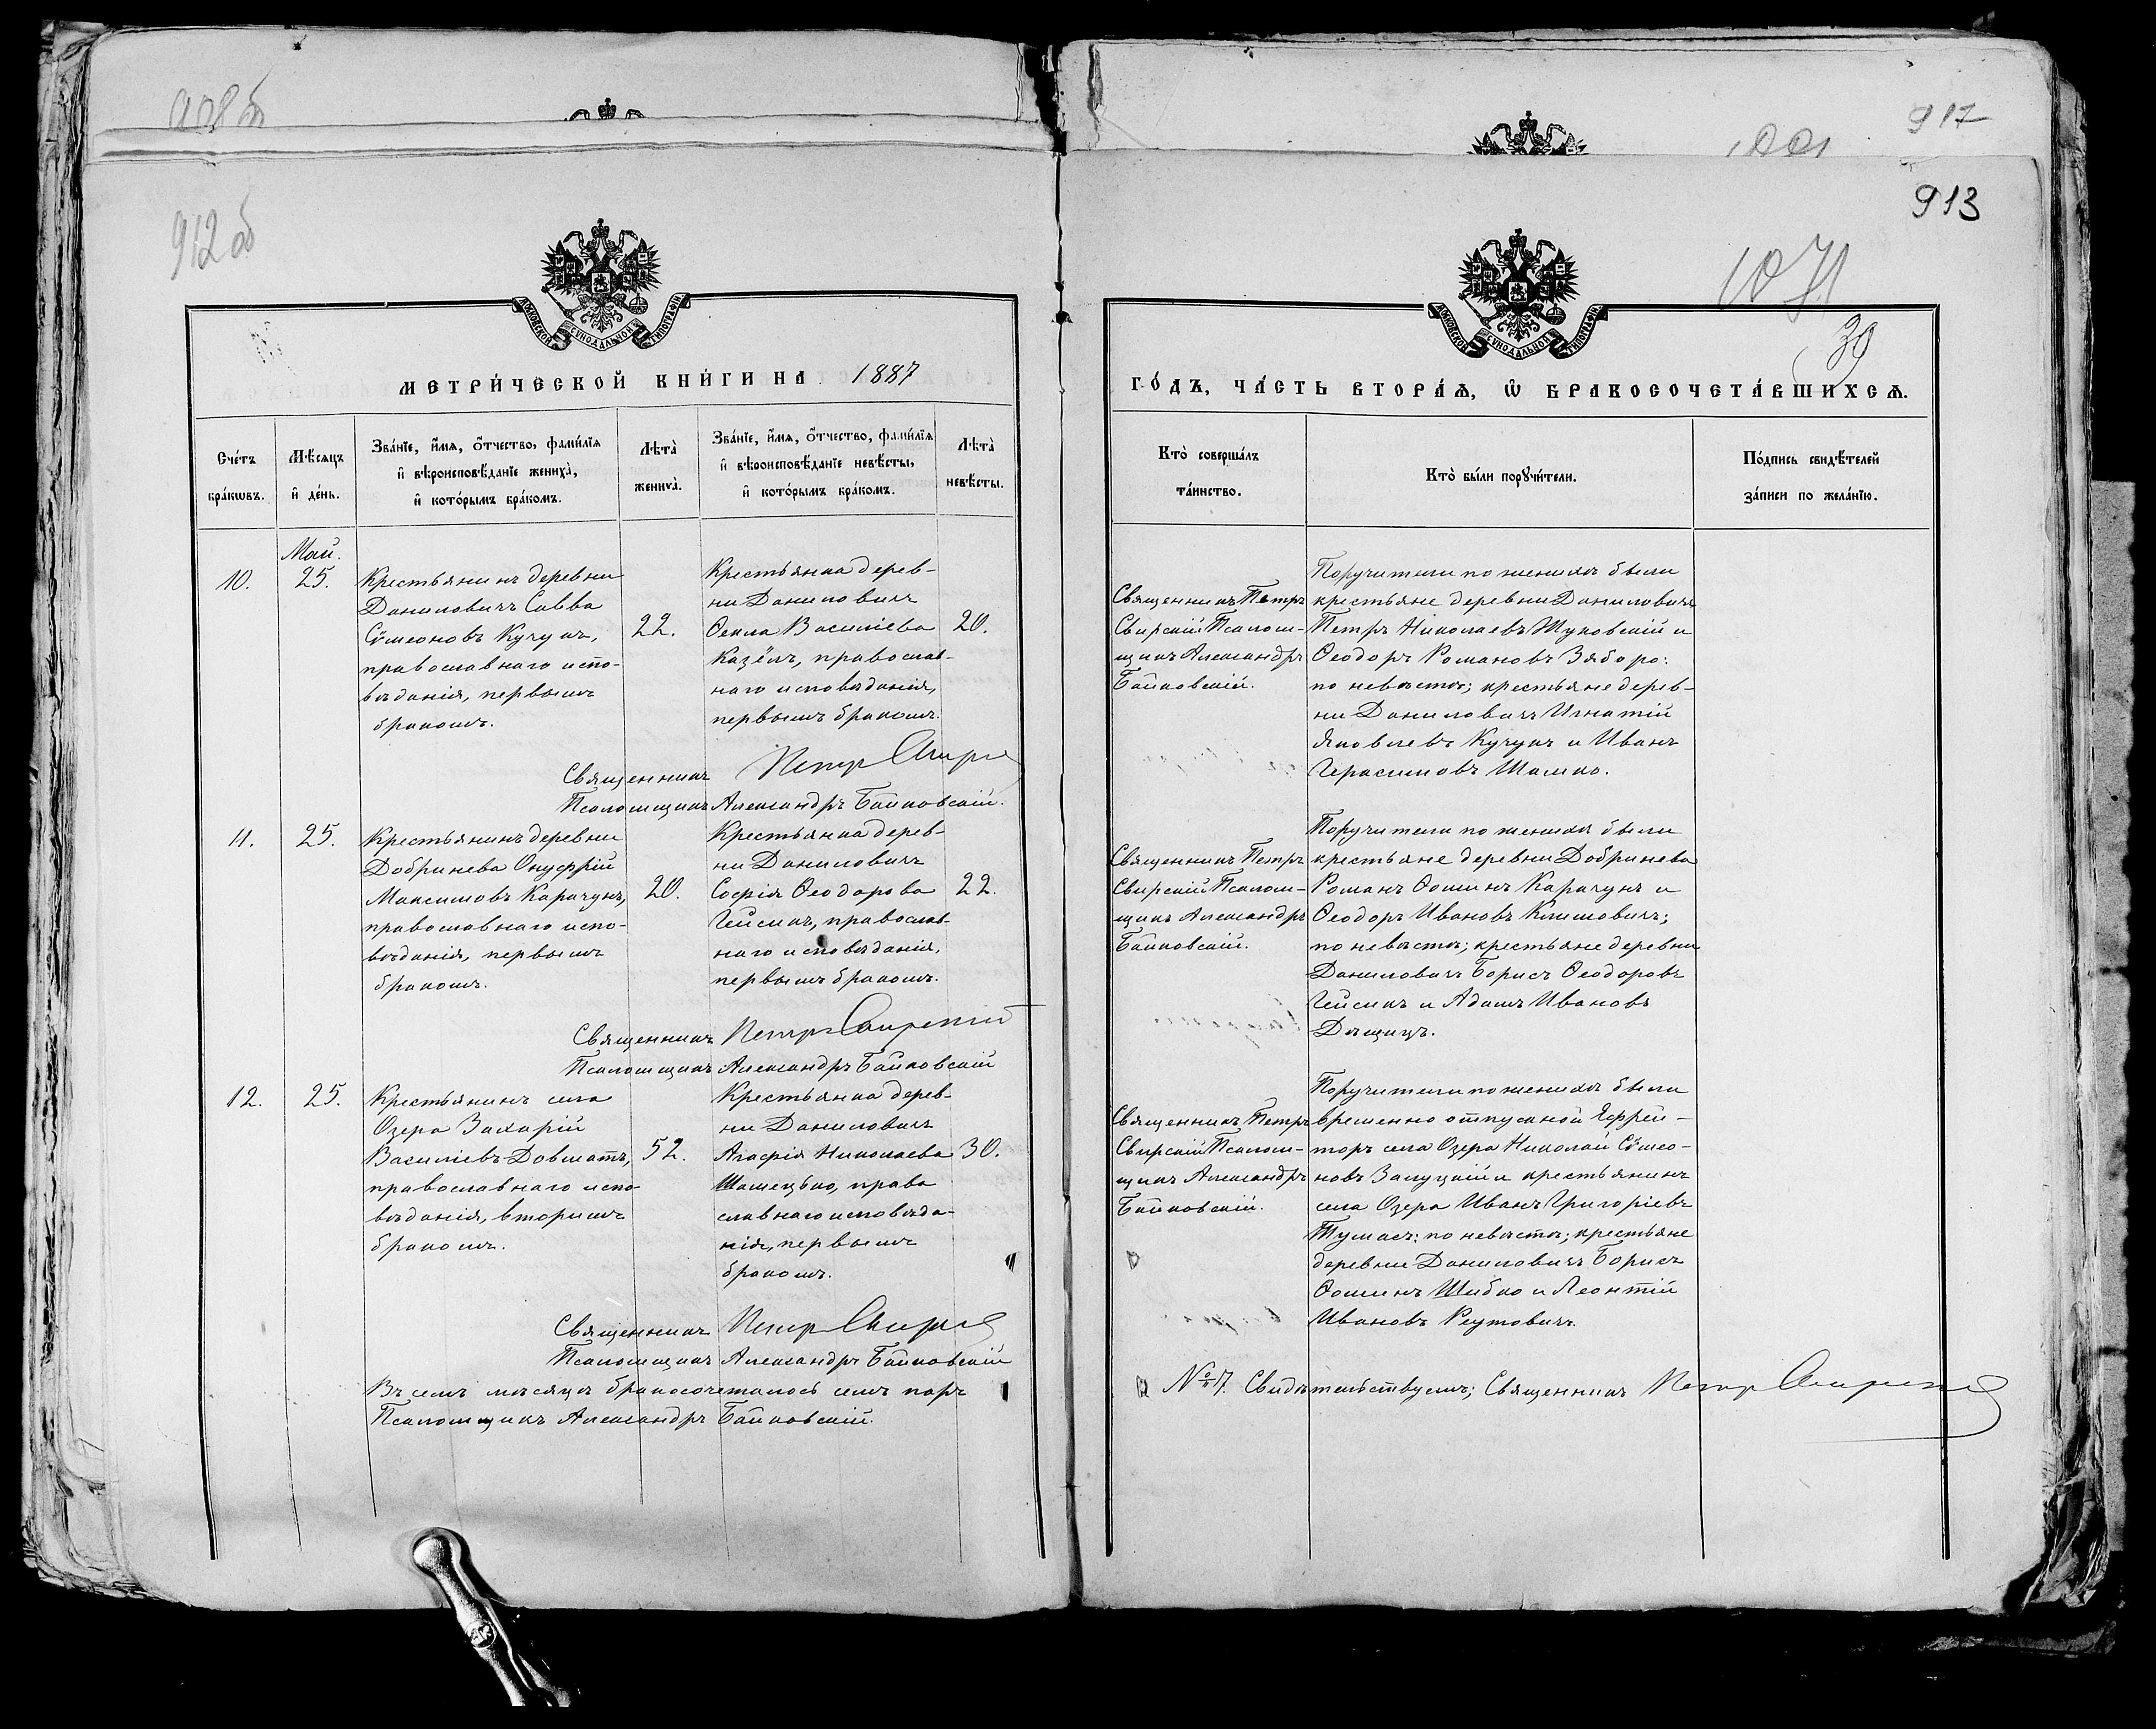 917
912 об
913
1071
39
МОСКОВСКОЙ СѴНОДАЛЬНОЙ ТИПОГРАФІИ
МОСКОВСКОЙ СѴНОДАЛЬНОЙ ТИПОГРАФІИ
МЕТРИ́ЧЕСКОЙ КНИ́ГИ НА 1887
ГО́ДЪ, ЧА́СТЬ ВТОРА́Ѧ, Ѡ҆ БРАКОСОЧЕТА́ВШИХСѦ.
Сче́тъ
бра́кѡвъ.
Мѣ́сѧцъ
и҆ де́нь.
Зва́нїе, и҆́мѧ, ѻ҆́тчество, фами́лїѧ
и҆ вѣроисповѣ́данїе жениха̀,
и҆ кото́рымъ бра́комъ.
Лѣта̀
жениха̀.
Зва́нїе, и҆́мѧ, ѻ҆́тчество, фами́лїѧ
и҆ вѣроисповѣ́данїе невѣ́сты,
и҆ кото́рымъ бра́комъ.
Лѣта̀
невѣ́сты.
Кто̀ соверша́лъ
та́инство.
Кто̀ бы́ли порꙋчи́тели.
По́дпись свидѣ́телей
за́писи по жела́нїю.
Май.
10.
25.
Крестьянинъ деревни
Даниловичъ Савва
Сѷмеоновъ Кучукъ,
православнаго испо-
вѣданія, первымъ
бракомъ.
22.
Крестьянка дерев-
ни Даниловичъ
Ѳекла Василіева
Казёлъ, православ-
наго исповѣданія,
первымъ бракомъ.
20.
Священникъ Петръ
Свирскій Псалом-
щикъ Александръ
Байковскій.
Поручители по женихѣ были
крестьяне деревни Даниловичъ
Петръ Николаевъ Жуковскій и
Ѳеодоръ Романовъ Зяборо:
по невѣстѣ; крестьяне дерев-
ни Даниловичъ Игнатій
Яковлевъ Кучукъ и Иванъ
Герасимовъ Шамко.
Священникъ Петръ
Псаломщикъ Александръ Байковскій.
11.
25.
Крестьянинъ деревни
Добринева Онуфрій
Максимовъ Карачунъ,
православнаго испо-
вѣданія, первымъ
бракомъ.
20.
Крестьянка дерев-
ни Даниловичъ
Софія Ѳеодорова
Гейсикъ, православ-
наго исповѣданія,
первымъ бракомъ.
22.
Священникъ Петръ
Свирскій Псалом-
щикъ Александръ
Байковскій.
Поручители по женихѣ были
крестьяне деревни Добринева
Романъ Ѳоминъ Карачунъ и
Ѳеодоръ Ивановъ Климовичъ;
по невѣстѣ; крестьяне деревни
Даниловичъ Борисъ Ѳеодоровъ
Гейсикъ и Адамъ Ивановъ
Дѣщицъ.
Священникъ Петръ Свирскій
Псаломщикъ Александръ Байковскій
12.
25.
Крестьянинъ села
Озера Захарій
Василіевъ Довматъ,
православнаго испо-
вѣданія, вторымъ
бракомъ.
52.
Крестьянка дерев-
ни Даниловичъ
Агафія Николаева
Шамецько, право
славнаго исповѣда-
нія, первымъ
бракомъ.
30.
Священникъ Петръ
Свирскій Псалом-
щикъ Александръ
Байковскій.
Поручители по женихѣ были
временно отпускной Ефрей-
торъ села Озера Николай Сѷмео-
новъ Залуцкій и крестьянинъ
села Озера Иванъ Григоріевъ
Тумасъ: по невѣстѣ; крестьяне
деревни Даниловичъ Борисъ
Ѳоминъ Шибко и Леонтій
Ивановъ Реутовичъ.
Священникъ Петръ
Псаломщикъ Александръ Байковскій
Въ семъ мѣсяцѣ бракосочеталось семь паръ
№ 7. Свидѣтельствуемъ; Священникъ Петръ Свирскій
Псаломщикъ Александръ Байковскій.